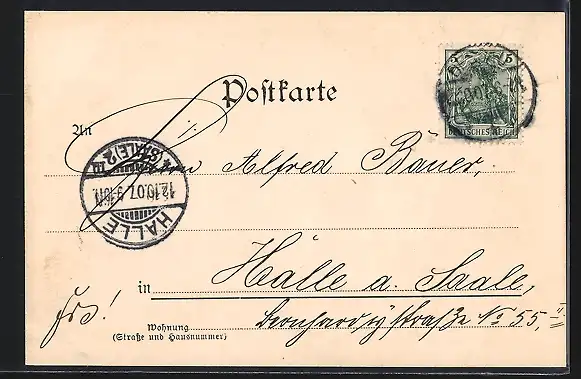 Postkarte
5 5
DEUTSCHES REICH
An
Herrn Alfred Bauer,
HALLE
(SAALE) 2
12.10.07. 9-10N.
in Halle a. Saale,
frei!
Wohnung
(Straße und Hausnummer)
Bernhardystraße No 55, II